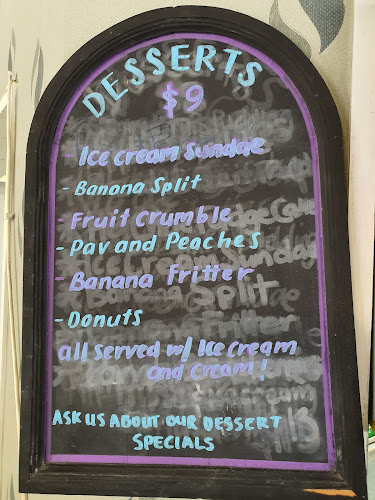 DESSERTS
$9
- Ice cream Sundae
- Banana Split
- Fruit Crumble
- Pav and Peaches
- Banana Fritter
- Donuts
all served w/ Ice cream
and cream!
ASK US ABOUT OUR DESSERT
SPECIALS